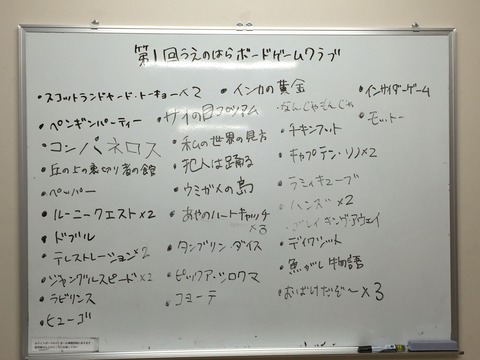 第1回うえのはらボードゲームクラブ
・スコットランドヤード・トーキョー×2
・ペンギンパーティー
・コンパネロス
・丘の上の裏切り者の館
・ペッパー
・ルーニークエスト×2
・ドブル
・テレストレーション×2
・ジャングルスピード×2
・ラビリンス
・ヒューゴ
・インカの黄金
・サイの目
・私の世界の見方
・犯人は踊る
・ウミガメの島
・あやのハートキャッチ
×3
・タンブリン・ダイス
・ピックアー・ツロクマ
・コヨーテ
・なんじゃもんじゃ
・チキンフット
・キャプテン・リノ×2
・ラミィキューブ
・ハンズ×2
・ブレイキングアウェイ
・ディクシット
・魚がし物語
・おばけだぞ～×3
・インサイダーゲーム
・モットー